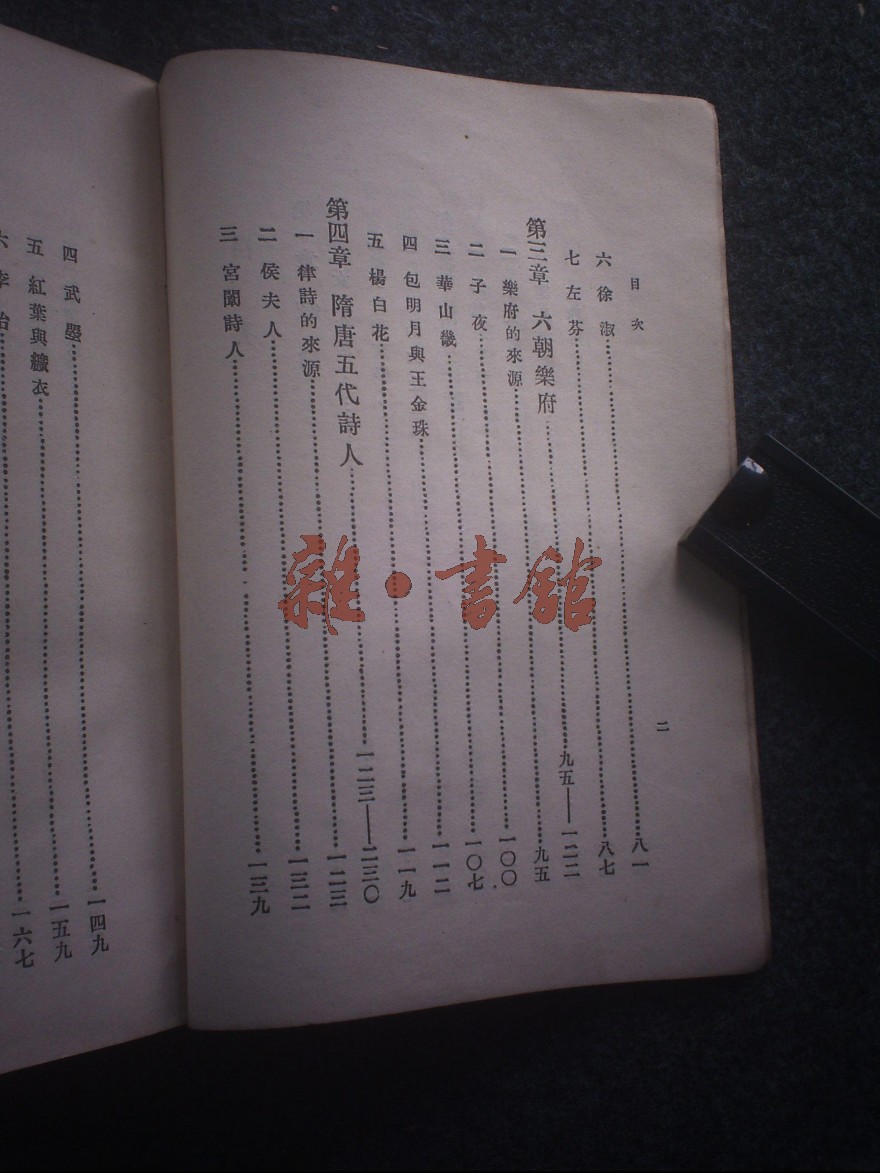 目次
二
六 徐淑……八一
七 左芬……八七
第三章 六朝樂府……九五——一二二
一 樂府的來源……九五
二 子夜……一〇〇
三 華山畿……一〇七
四 包明月與王金珠……一一二
五 楊白花……一一九
第四章 隋唐五代詩人……一二三——二三〇
一 律詩的來源……一二三
二 侯夫人……一三二
三 宮闈詩人……一三九
四 武曌……一四九
五 紅葉與纊衣……一五九
六 李冶……一六七
雜·書館